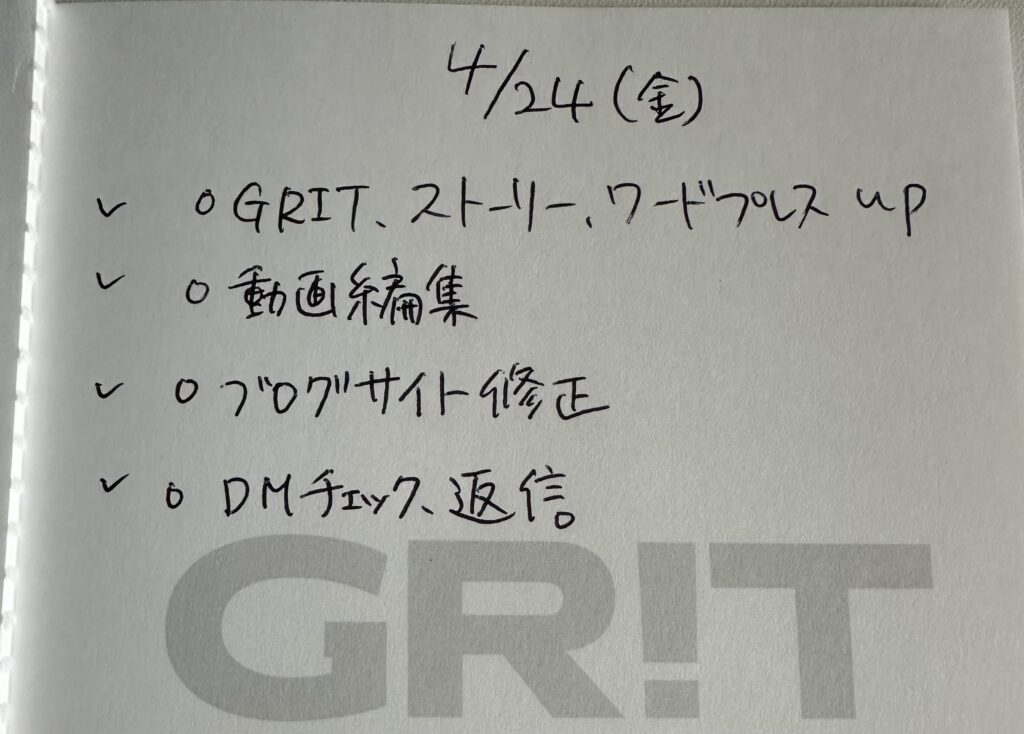 4/24(金)
✓ ○GRIT、ストーリー、ワードプレス up
✓ ○動画編集
✓ ○ブログサイト修正
✓ ○DMチェック、返信
GR!T